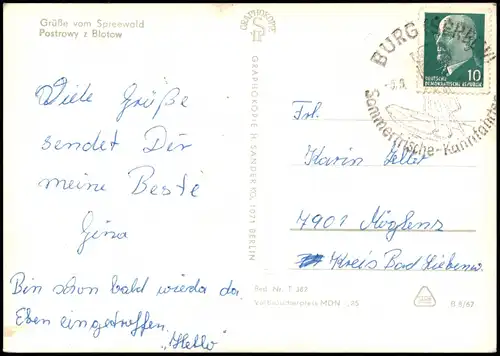 Grüße vom Spreewald
Postrowy z Błotow
GRAPHOKOPIE
GRAPHOKOPIE H. SANDER KG, 1071 BERLIN
BURG (SPREEW)
Sommerfrische-Kahnfahrten
10
DEUTSCHE
DEMOKRATISCHE REPUBLIK
Viele Grüße
sendet Dir
meine Beste
Gina
Bin schon bald wieda da.
Eben eingetroffen.
"Hello"
Frl.
Karin Zeller
7901 Möglenz
Kreis Bad Liebenw.
Best. Nr. T 363
Verbraucherpreis MDN -,25
B 8/67